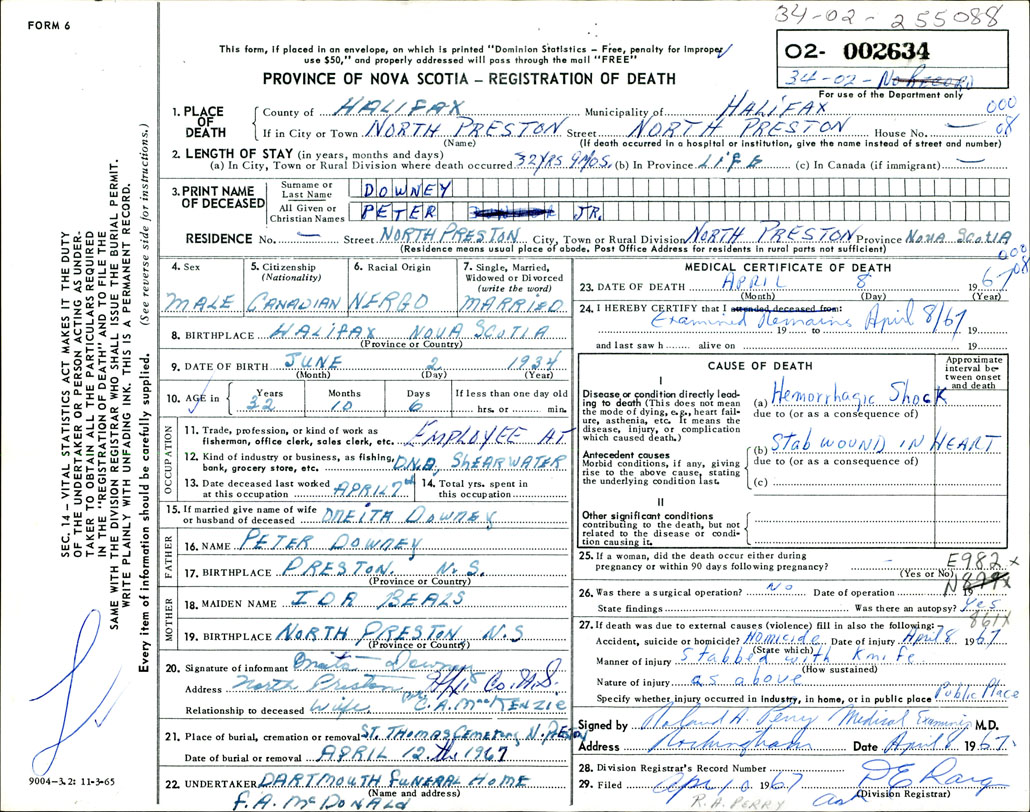 FORM 6
34-02-255088
This form, if placed in an envelope, on which is printed "Dominion Statistics – Free, penalty for improper
use $50," and properly addressed will pass through the mail "FREE"
02- 002634
34-02- No Record
For use of the Department only
PROVINCE OF NOVA SCOTIA – REGISTRATION OF DEATH
1. PLACE OF DEATH
County of HALIFAX Municipality of HALIFAX 000
If in City or Town NORTH PRESTON Street NORTH PRESTON House No. — 08
(Name) (If death occurred in a hospital or institution, give the name instead of street and number)
2. LENGTH OF STAY (in years, months and days)
(a) In City, Town or Rural Division where death occurred 32 YRS. 9 MOS. (b) In Province LIFE (c) In Canada (if immigrant) —
3. PRINT NAME OF DECEASED
Surname or Last Name DOWNEY
All Given or Christian Names PETER JR.
RESIDENCE No. — Street NORTH PRESTON City, Town or Rural Division NORTH PRESTON Province NOVA SCOTIA
(Residence means usual place of abode. Post Office Address for residents in rural parts not sufficient)
000
08
4. Sex
MALE
5. Citizenship
(Nationality)
CANADIAN
6. Racial Origin
NERGO
7. Single, Married,
Widowed or Divorced
(write the word)
MARRIED
8. BIRTHPLACE HALIFAX NOVA SCOTIA
(Province or Country)
9. DATE OF BIRTH JUNE 2 1934
(Month) (Day) (Year)
10. AGE in
Years 32
Months 10
Days 6
If less than one day old
hrs. or min.
OCCUPATION
11. Trade, profession, or kind of work as
fisherman, office clerk, sales clerk, etc. EMPLOYEE AT
12. Kind of industry or business, as fishing,
bank, grocery store, etc. D.N.D. SHEARWATER
13. Date deceased last worked
at this occupation APRIL 7
14. Total yrs. spent in
this occupation
15. If married give name of wife
or husband of deceased ONEITA DOWNEY
FATHER
16. NAME PETER DOWNEY
17. BIRTHPLACE PRESTON N.S.
(Province or Country)
MOTHER
18. MAIDEN NAME IDA BEALS
19. BIRTHPLACE NORTH PRESTON N.S
(Province or Country)
20. Signature of informant Oneita Downey
Address North Preston Hfx Co. N.S.
Relationship to deceased Wife C.A. MacKENZIE
21. Place of burial, cremation or removal ST. THOMAS CEMETERY N. PRESTON
Date of burial or removal APRIL 12 th 1967
22. UNDERTAKER DARTMOUTH FUNERAL HOME
(Name and address)
F.A. McDONALD
MEDICAL CERTIFICATE OF DEATH
23. DATE OF DEATH APRIL 8 1967
(Month) (Day) (Year)
24. I HEREBY CERTIFY that I attended deceased from:
Examined Remains April 8/67
19 to 19
and last saw h alive on 19
CAUSE OF DEATH
Approximate
interval be-
tween onset
and death
I
Disease or condition directly lead-
ing to death (This does not mean
the mode of dying, e.g., heart fail-
ure, asthenia, etc. It means the
disease, injury, or complication
which caused death.)
(a) Hemorrhagic Shock
due to (or as a consequence of)
Antecedent causes
Morbid conditions, if any, giving
rise to the above cause, stating
the underlying condition last.
(b) Stab wound IN HEART
due to (or as a consequence of)
(c)
II
Other significant conditions
contributing to the death, but not
related to the disease or condi-
tion causing it.
25. If a woman, did the death occur either during
pregnancy or within 90 days following pregnancy? -
(Yes or No)
E982x
N879x
26. Was there a surgical operation? NO Date of operation 19
State findings Was there an autopsy? Yes
861x
27. If death was due to external causes (violence) fill in also the following:
Accident, suicide or homicide? Homicide Date of injury April 8 1967
(State which)
Manner of injury Stabbed with knife
(How sustained)
Nature of injury as above
Specify whether injury occurred in Industry, in home, or in public place Public Place
Signed by Roland A. Perry Medical Examiner M.D.
Address Rockingham Date April 8 1967.
28. Division Registrar's Record Number
29. Filed Apr 10 1967
(Division Registrar)
R.A. PERRY
SEC. 14 – VITAL STATISTICS ACT MAKES IT THE DUTY
OF THE UNDERTAKER OR PERSON ACTING AS UNDER-
TAKER TO OBTAIN ALL THE PARTICULARS REQUIRED
IN THE "REGISTRATION OF DEATH" AND TO FILE THE
SAME WITH THE DIVISION REGISTRAR WHO SHALL ISSUE THE BURIAL PERMIT.
WRITE PLAINLY WITH UNFADING INK. THIS IS A PERMANENT RECORD.
Every item of information should be carefully supplied. (See reverse side for instructions.)
9004–3.2: 11-3-65